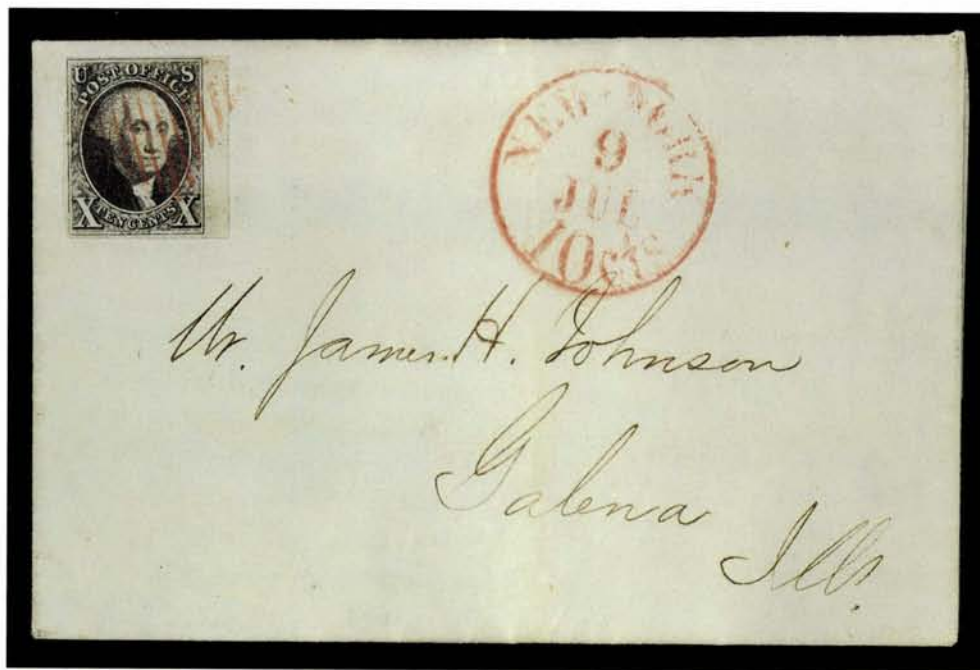 U S
POST OFFICE
X TEN CENTS X
NEW-YORK
9
JUL
10 cts
Mr. James. H. Johnson
Galena
Ills.